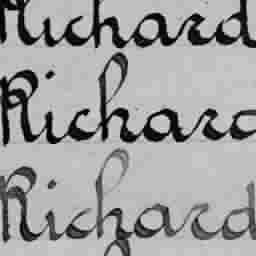 Richard
Richard
Richard